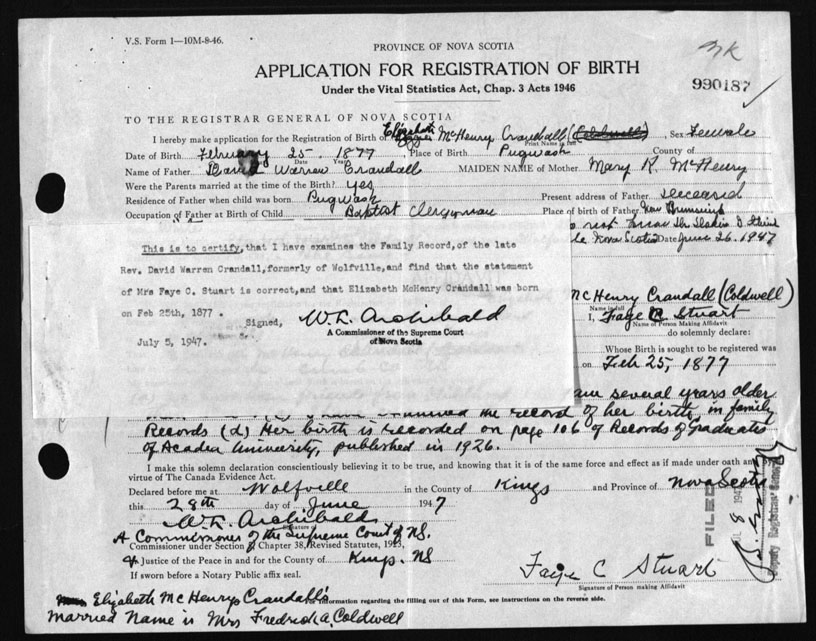 V.S. Form 1—10M-8-46.
PROVINCE OF NOVA SCOTIA
APPLICATION FOR REGISTRATION OF BIRTH
Under the Vital Statistics Act, Chap. 3 Acts 1946
990187
TO THE REGISTRAR GENERAL OF NOVA SCOTIA
I hereby make application for the Registration of Birth of Elizabeth McHenry Crandall (Coldwell), Sex Female
Print Name in full
Date of Birth February 25. 1877 Place of Birth Pugwash County of
Date Year
Name of Father David Warren Crandall MAIDEN NAME of Mother Mary K. McHenry
Were the Parents married at the time of the Birth? yes
Residence of Father when child was born Pugwash Present address of Father Deceased
Occupation of Father at Birth of Child Baptist Clergyman Place of birth of Father New
Nova Scotia Date June 26. 1947
This is to certify, that I have examines the Family Record, of the late
Rev. David Warren Crandall, formerly of Wolfville, and find that the statement
of Mrs Faye C. Stuart is correct, and that Elizabeth McHenry Crandall was born
on Feb 25th, 1877 .
Signed, W.L. Archibald
A Commissioner of the Supreme Court
of Nova Scotia
July 5, 1947.
McHenry Crandall (Coldwell)
Name in full
I, Faye C Stuart
Name of Person Making Affidavit
do solemnly declare:
Whose Birth is sought to be registered was
on Feb 25, 1877
am several years older
examined the record of her birth, in family
Records (d) Her birth is recorded on page 106 of Records of Graduates
of Acadia University, published in 1926.
I make this solemn declaration conscientiously believing it to be true, and knowing that it is of the same force and effect as if made under oath and by
virtue of The Canada Evidence Act.
Declared before me at Wolfville in the County of Kings and Province of Nova Scotia
this 28th day of June 1947
W.L. Archibald
Signature of
A Commissioner of the Supreme Court of NS.
Commissioner under Section of Chapter 38, Revised Statutes, 1923,
& Justice of the Peace in and for the County of Kings. NS
If sworn before a Notary Public affix seal.
Faye C Stuart
Signature of Person making Affidavit
FILED
8 194
Deputy Registrar General
For information regarding the filling out of this Form, see instructions on the reverse side.
Elizabeth McHenry Crandall's
married Name is Mrs Fredrick A. Coldwell